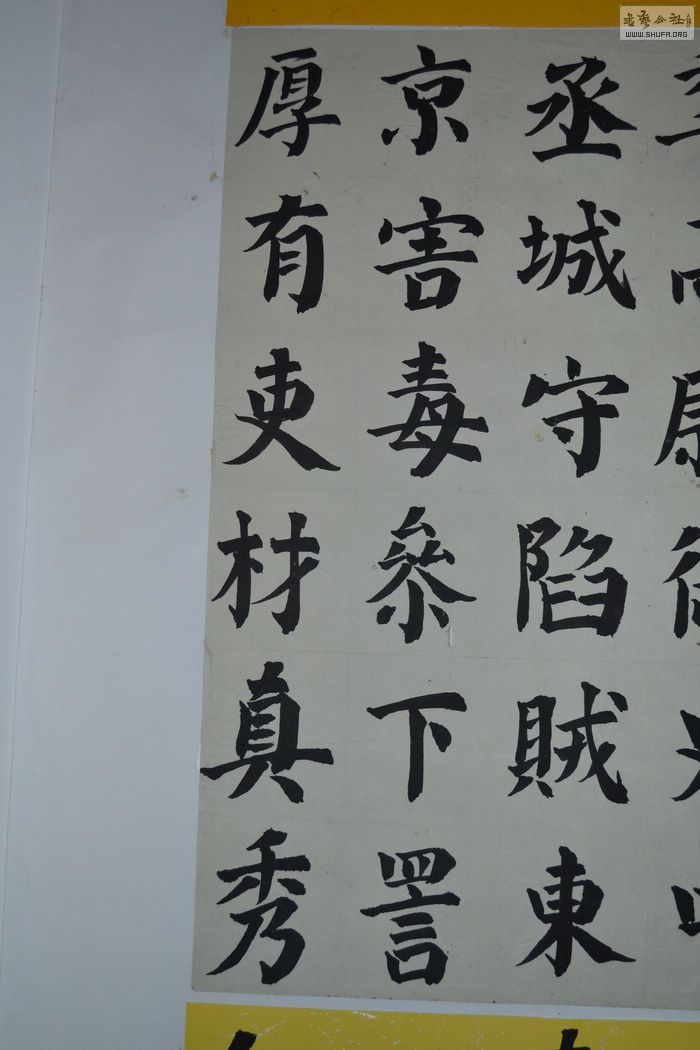 丞城守陷賊東
京害毒參下詈
厚有吏材真秀
書藝公社
WWW.SHUFA.ORG